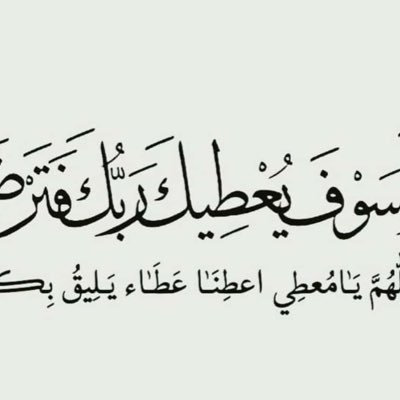 سَوْفَ يُعْطِيكَ رَبُّكَ فَتَرْضَ
لّٰهُمَّ يَامُعطِي اعطِنَا عَطَاء يَلِيقُ بِكَـ